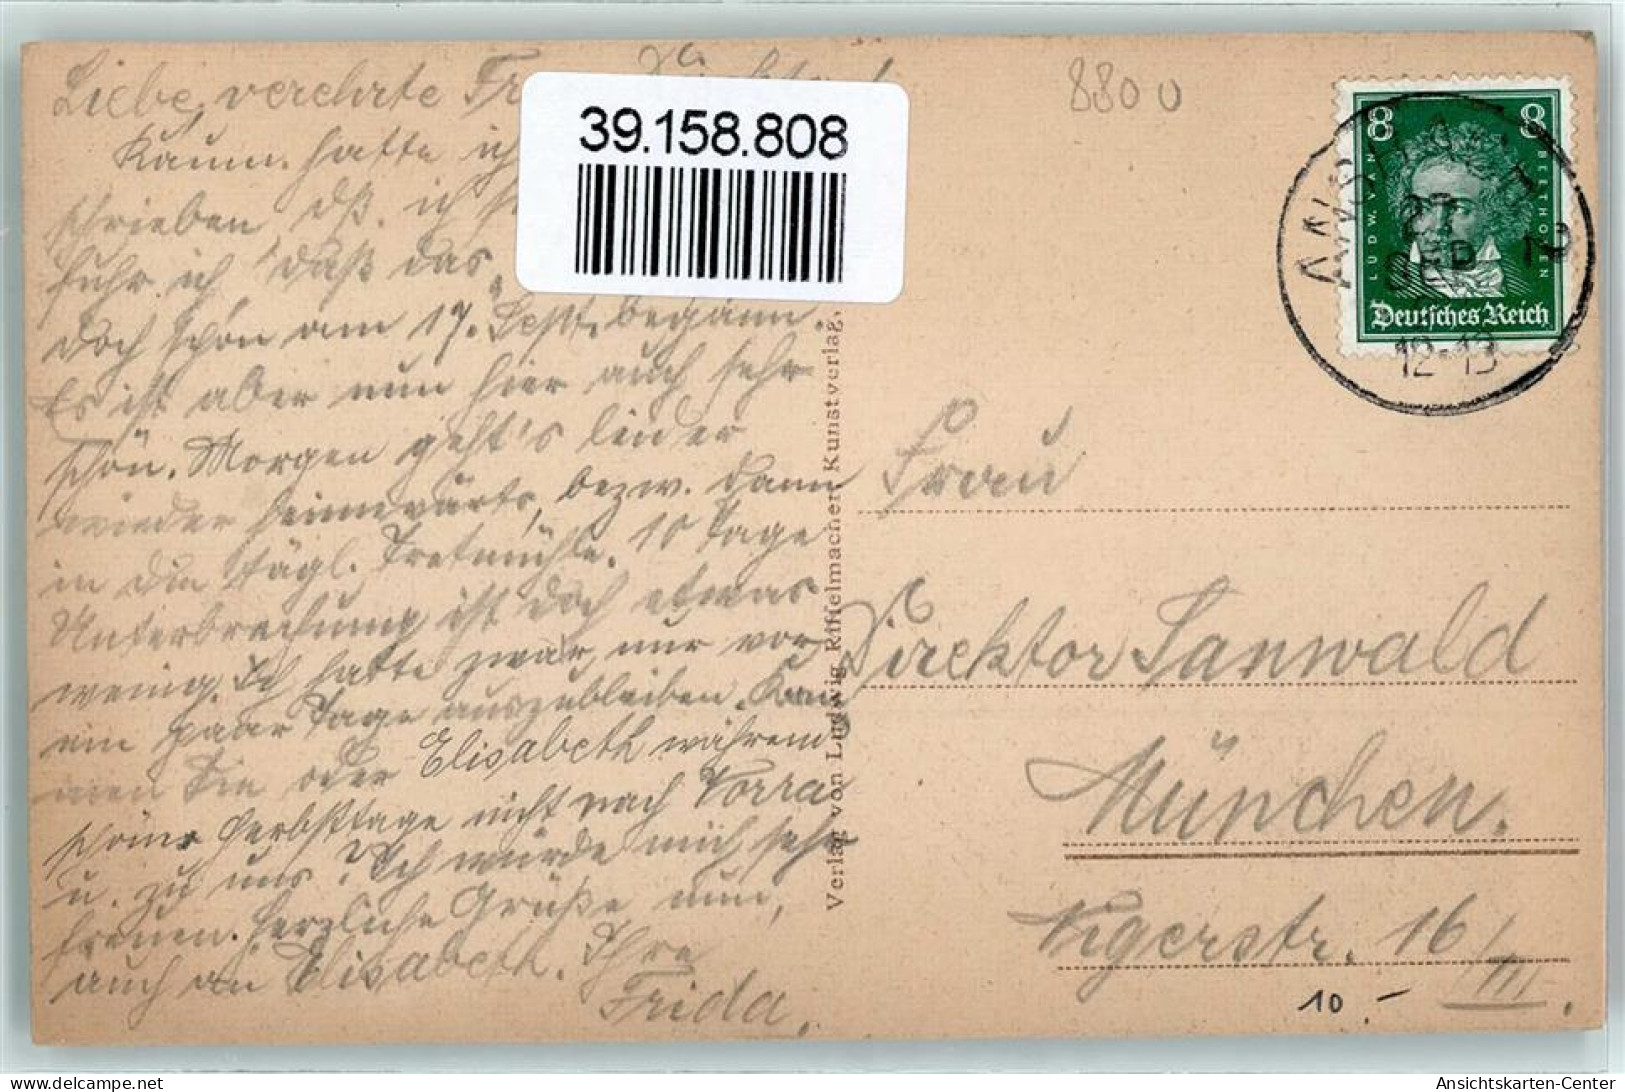 Liebe, verehrte Fr
Kaum hatte ich
schrieben dß. ich
fuhr ich daß das
doch schön am 17. Sept. begann.
Es ist aber nun hier auch sehr
schön. Morgen geht's leider
wieder heimwärts, bezw. dann
in die tägl. Tretmühle. 10 Tage
Unterbrechung ist doch etwas
wenig. Ich hatte zwar nur vor
ein paar Tage auszubleiben. Kom
men Sie oder Elisabeth während
schöner Herbsttage nicht nach Vorra
u. zu uns? Ich würde mich sehr
freuen. Herzliche Grüße nun,
auch an Elisabeth. Ihre
Frida.
39.158.808
Verlag von Ludwig Riffelmacher Kunstverlag,
8800
8 8
LUDW. VAN BEETHOVEN
Deutsches Reich
ANSBACH 2
27
SEP
12-13
Frau
Direktor Sanwald
München.
Nigerstr. 16/III.
10.-
Ansichtskarten-Center